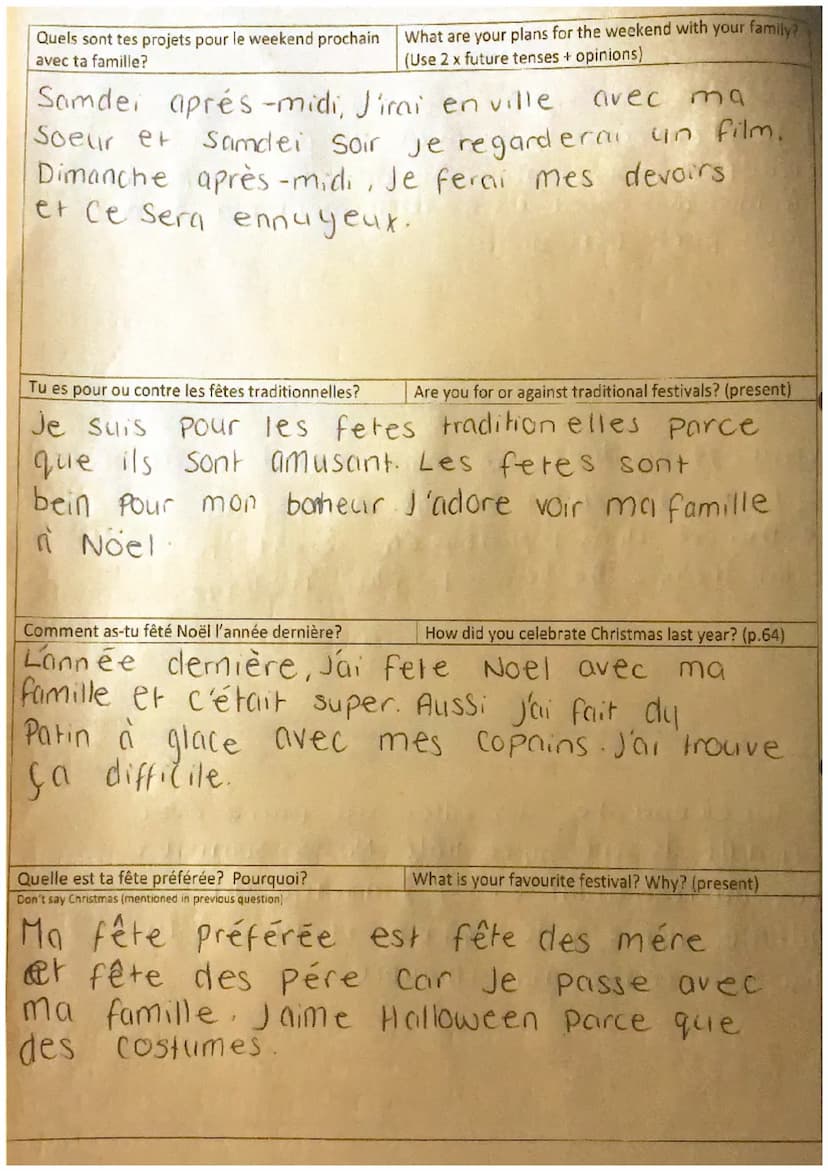 Quels sont tes projets pour le weekend prochain
avec ta famille?
What are your plans for the weekend with your family?
(Use 2 x future tenses + opinions)
Samdei aprés-midi, J'irai en ville avec ma
Soeur et Samdei Soir je regarderai un film.
Dimanche après-midi, Je ferai mes devoirs
et Ce Sera ennuyeux.
Tu es pour ou contre les fêtes traditionnelles?
Are you for or against traditional festivals? (present)
Je suis pour les fetes traditionelles parce
que ils sont amusant. Les fetes sont
bein pour mon bonheur J'adore voir ma famille
à Nöel.
Comment as-tu fêté Noël l'année dernière?
How did you celebrate Christmas last year? (p.64)
L'année dernière, J'ai fete Noel avec ma
famille et c'était super. Aussi j'ai fait du
Patin à glace avec mes copains. J'ai trouve
ça difficile.
Quelle est ta fête préférée? Pourquoi?
What is your favourite festival? Why? (present)
Don't say Christmas (mentioned in previous question)
Ma fête préférée est fête des mére
et fête des pére car Je passe avec
ma famille. J'aime Halloween parce que
des costumes.